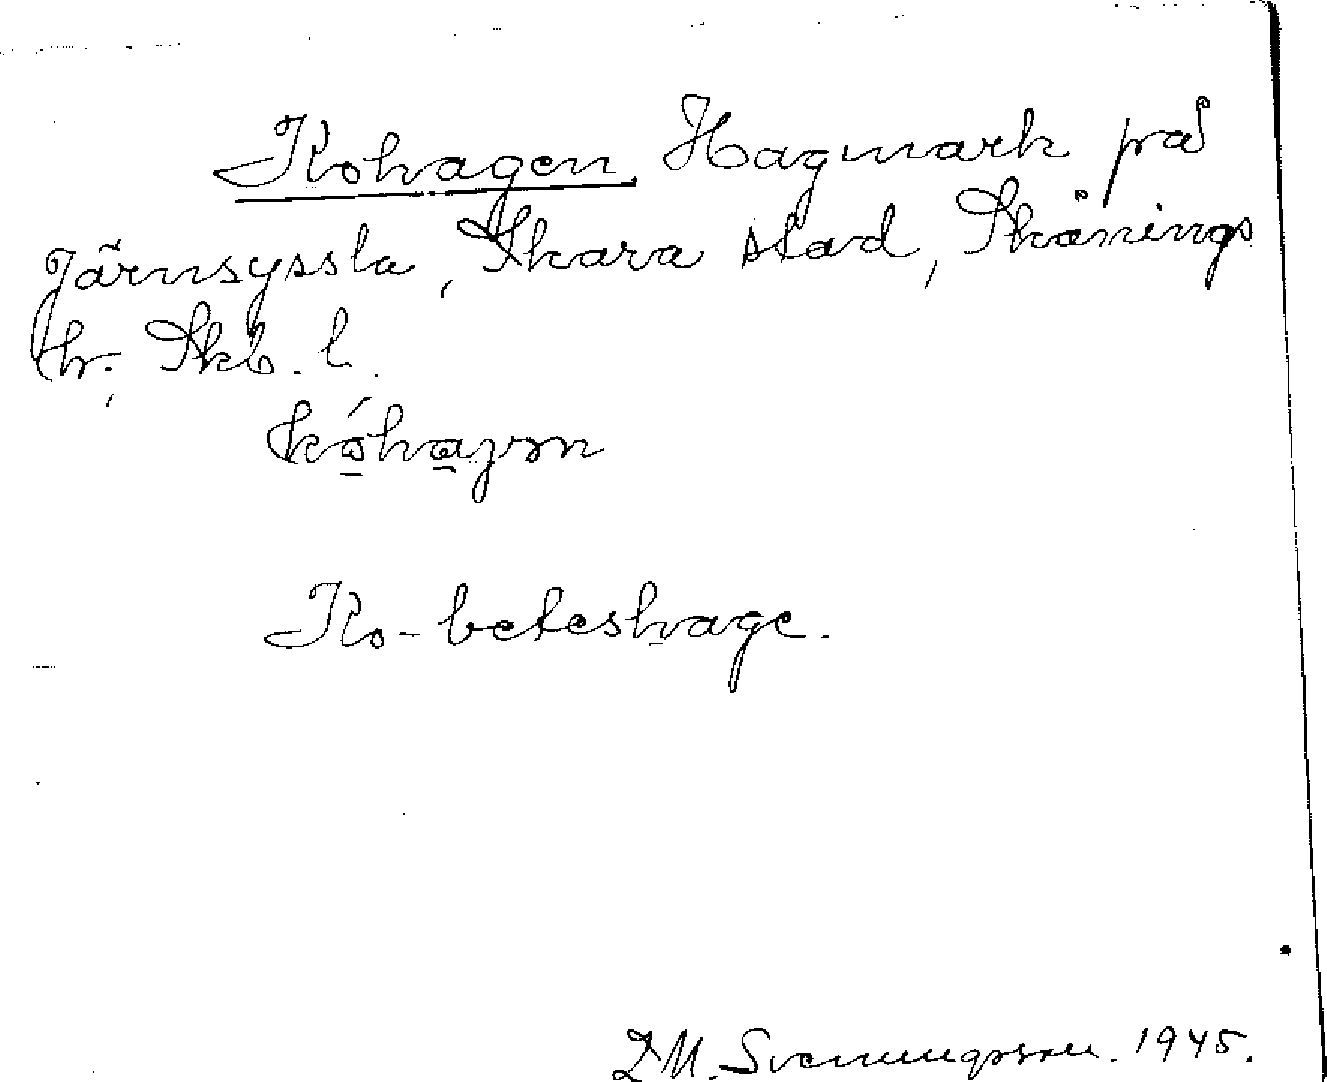 Kohagen, Hagmark på
Järnsyssla, Skara stad, Skånings
hr, Skb. l.
Ko-beteshage.
Svenungsson. 1945.